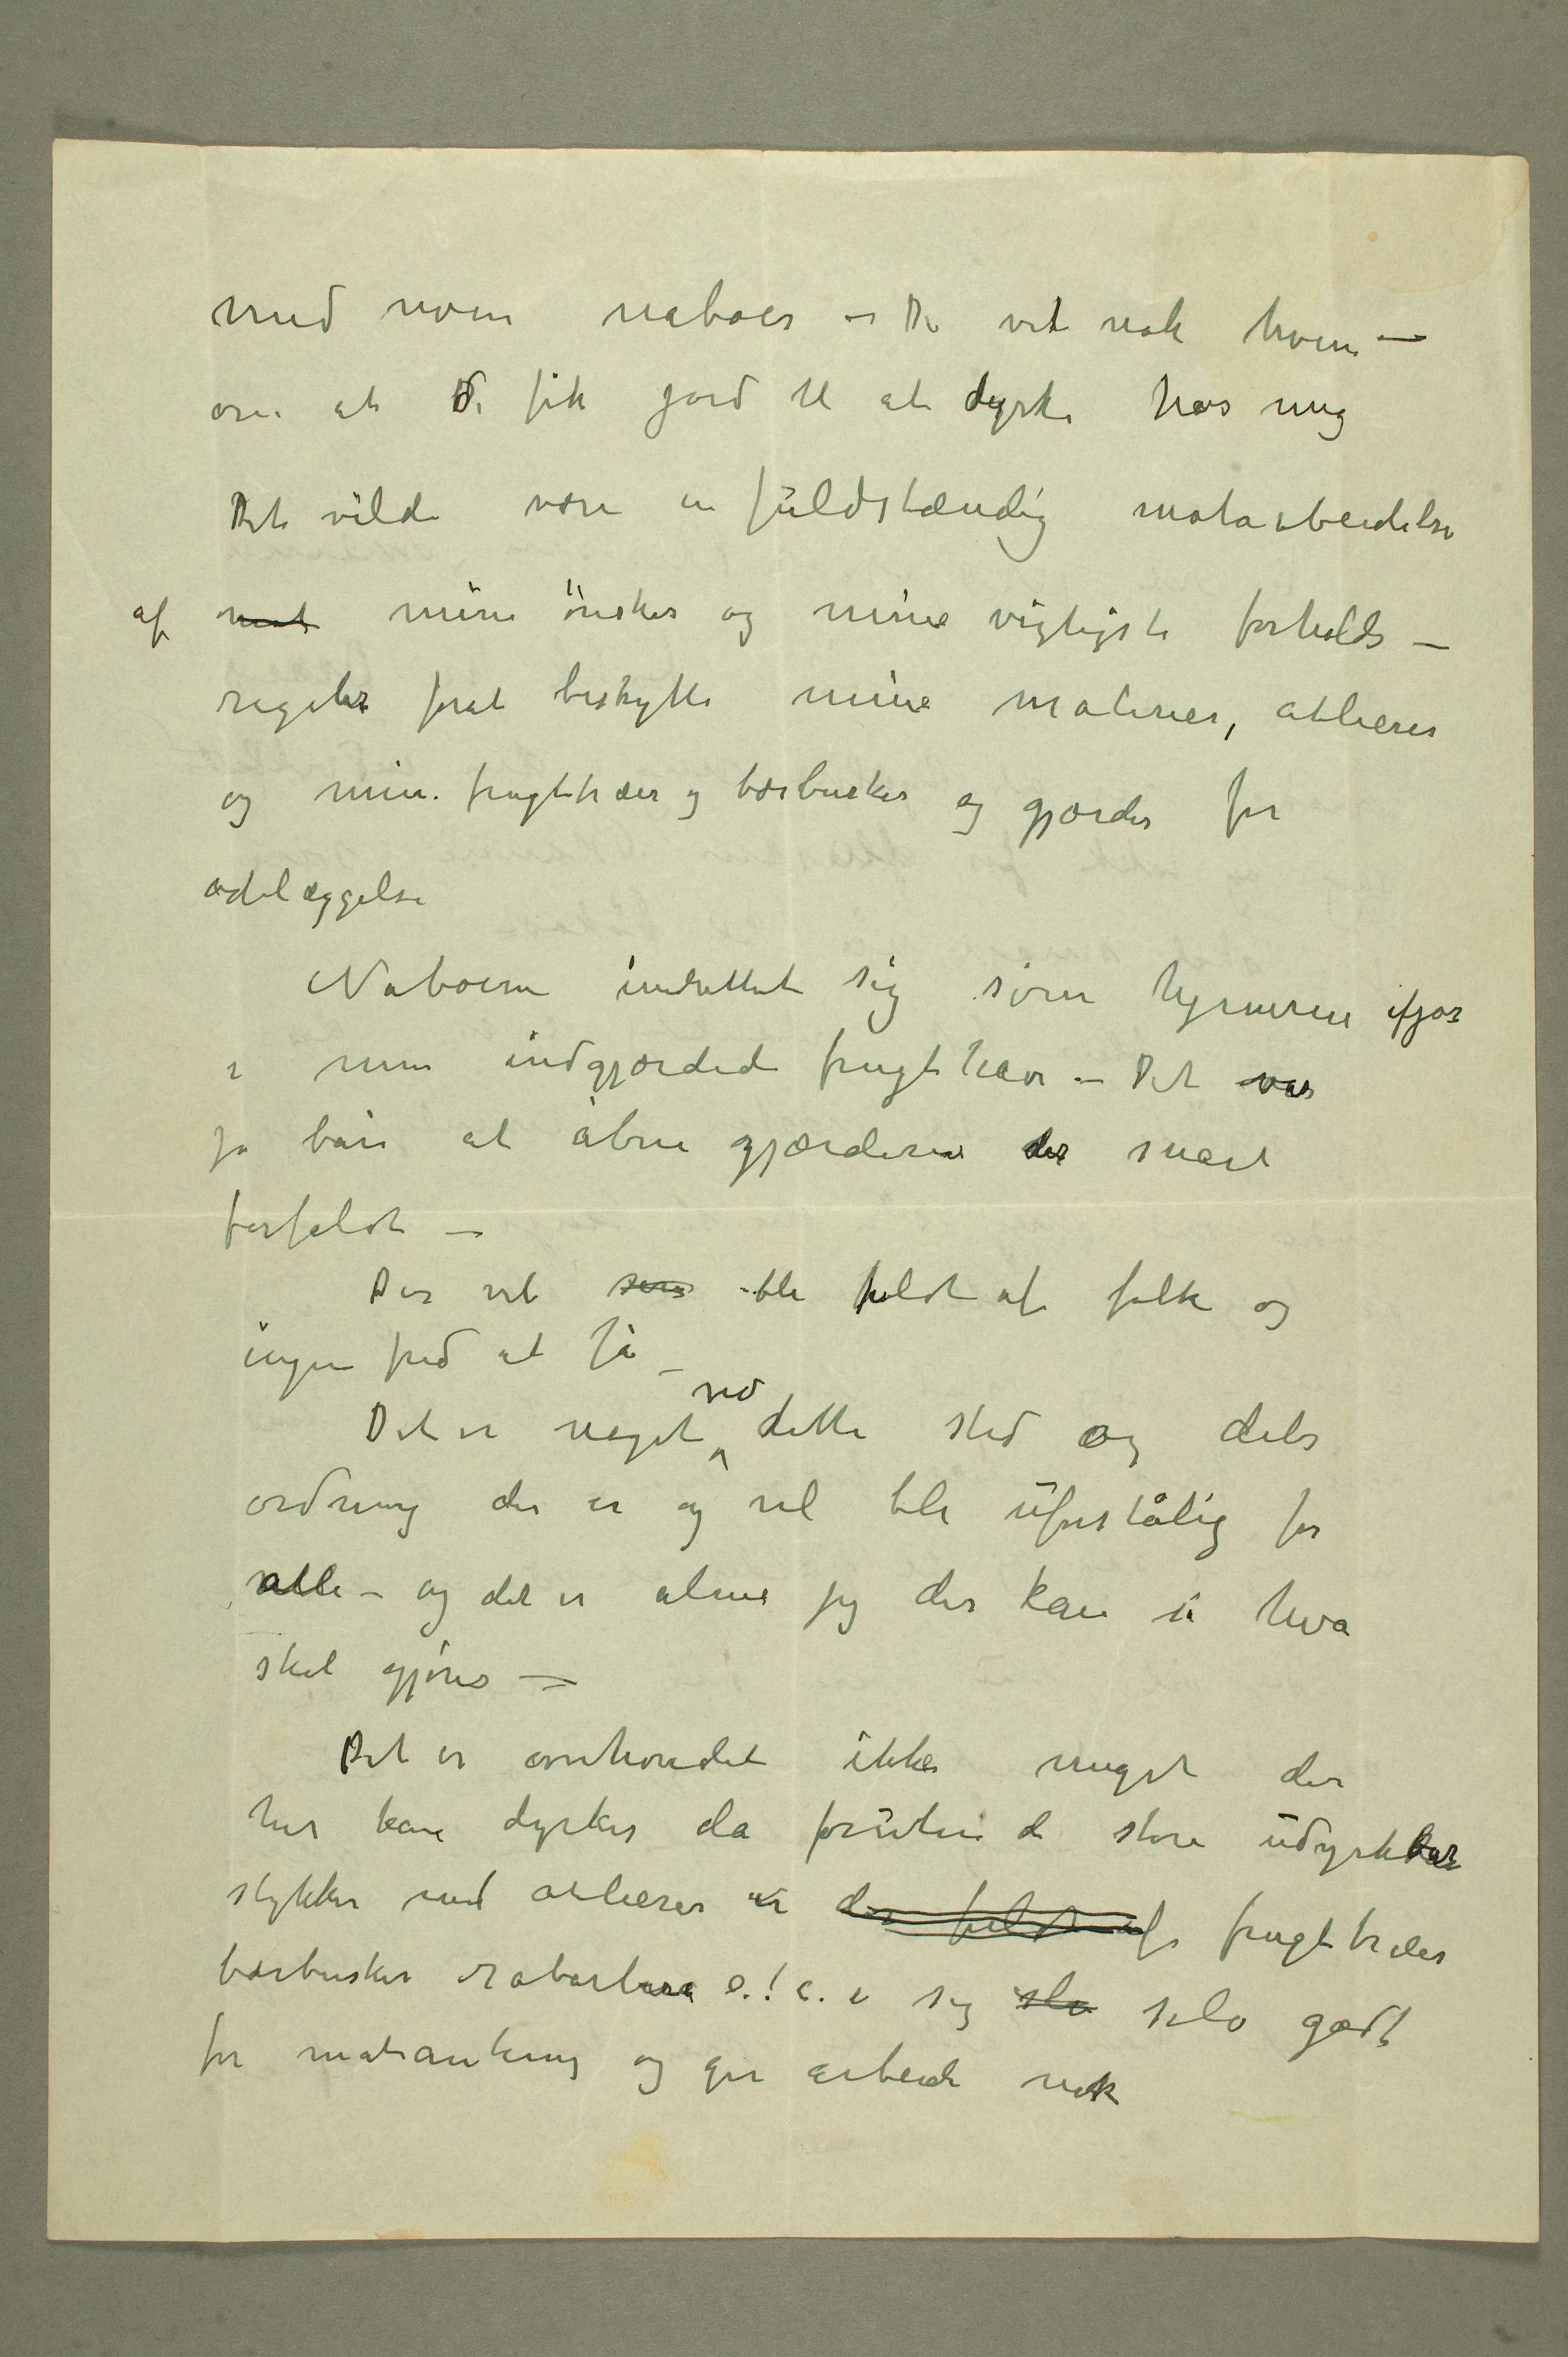 med noen naboer – De vet nok hvem –
om at De fik jord til at dyrke hos mig
Det vilde være en fuldstændig motarbeidelse
af mot mine ønsker og mine vigtigste forholds–
regler forat beskytte mine malerier, atelierer
og mine frugttrær og bærbusker og gjærder for
ødelæggelse
Naboerne indrettet sig som hjemme ifjor
i min indgjærdede frugthave – Det var
jo bare at åbne gjærderne der snart
forfaldt –
Der vil ble fuldt af folk og
ingen fred at få –
Det er noget ved dette sted og dets
ordning der er og vil ble uforståelig for
alle – og det er alene jeg der kan si hva
skal gjøres –
Det er overhovedet ikke meget der
her kan dyrkes da foruten de store udyrkbar
stykker med atelierer er der fuldt af frugttræer
bærbusker rabarbara e.t.c. i sig slv selv godt
for matrankung og gir arbeide nok